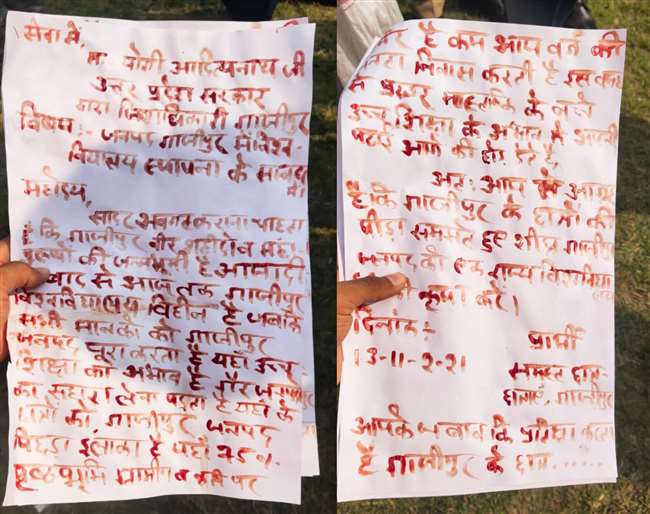 सेवा में,
मा. योगी आदित्यनाथ जी
उत्तर प्रदेश सरकार
द्वारा जिलाधिकारी गाजीपुर
विषय:- जनपद गाजीपुर में विश्व-
विद्यालय स्थापना के सम्बन्ध
में।
महोदय,
सादर अवगत कराना चाहता
कि गाजीपुर वीर शहीदों व महा
पुरुषों की जन्मभूमी है आजादी
बाद से आज तक गाजीपुर
विश्वविद्यालय विहीन है जबकि
सभी मानकों को गाजीपुर
जनपद पूरा करता है यहाँ उच्च
शिक्षा का अभाव गैर जनपद
का सहारा लेना पड़ता है यहाँ के
को, गाजीपुर जनपद
पिछड़ा इलाका है यहाँ 75%
पृष्ठभूमि ग्रामीण व
है कम आय वर्ग की
जनता निवास करती है इस वजह
से
उच्च शिक्षा के अभाव में अपनी
पढ़ाई आगे की छोड़ देते है
अतः आप से आग्रह
है कि गाजीपुर के छात्रों की
पीड़ा समझते हुए शीघ्र गाजीपुर
जनपद को एक राज्य विश्वविद्या
की कृपा करें।
दिनांक:-
प्रार्थी
13-11-2-21
समस्त छात्र-
छात्राएं, गाजीपुर
आपके जबाब कि प्रतिक्षा करता
है गाजीपुर के छात्र......